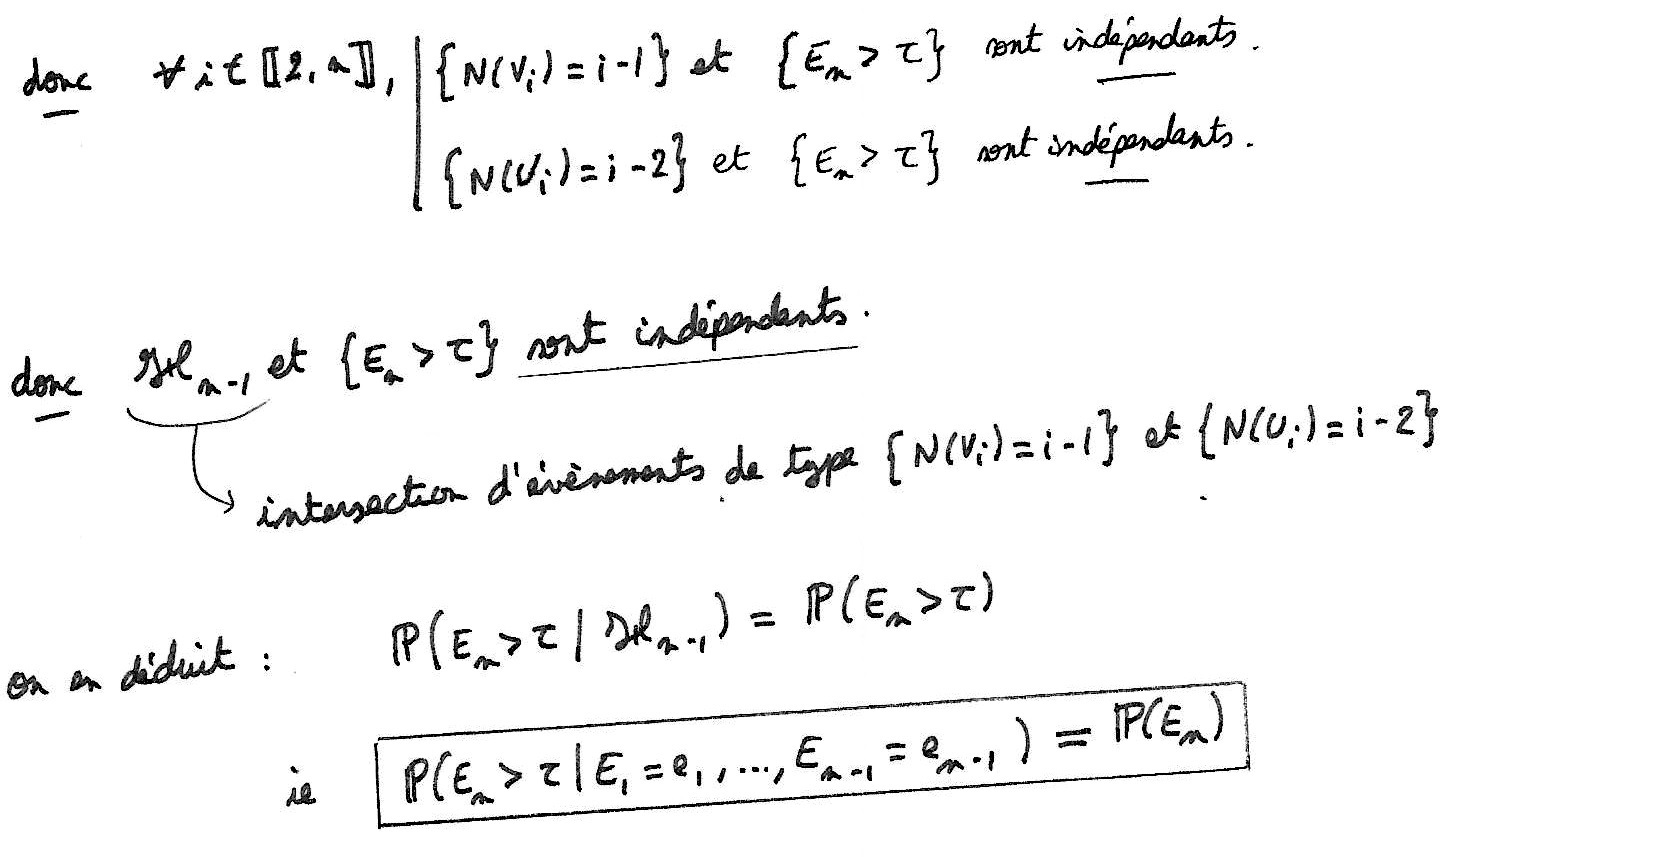 donc ∀ i ∈ ⟦2, n⟧, | {N(V_i) = i-1} et {E_n > τ} sont indépendants.
{N(U_i) = i-2} et {E_n > τ} sont indépendants.
donc ℋ_{n-1} et {E_n > τ} sont indépendants.
intersection d'évènements de type {N(V_i) = i-1} et {N(U_i) = i-2}
on en déduit : ℙ(E_n > τ | ℋ_{n-1}) = ℙ(E_n > τ)
ie ℙ(E_n > τ | E_1 = e_1, ..., E_{n-1} = e_{n-1}) = ℙ(E_n)